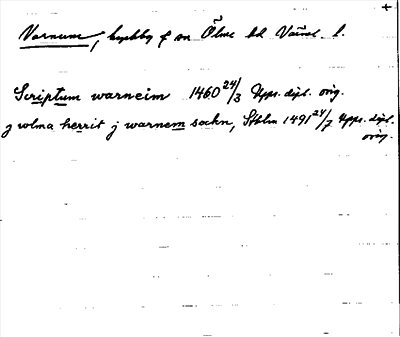 Varnum, kyrkby o sn Ölme hd Värml. l.
Scriptum warneim 1460 24/3 Upps. dipl. orig.
j wlma herrit j warnem sockn, Sthlm 1491 24/7 Upps. dipl.
orig.